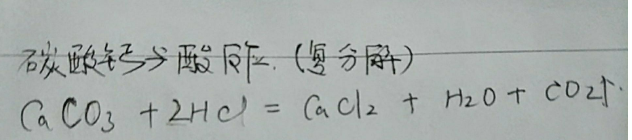 碳酸钙与酸反应.(复分解)
CaCO₃ + 2HCl = CaCl₂ + H₂O + CO₂↑.